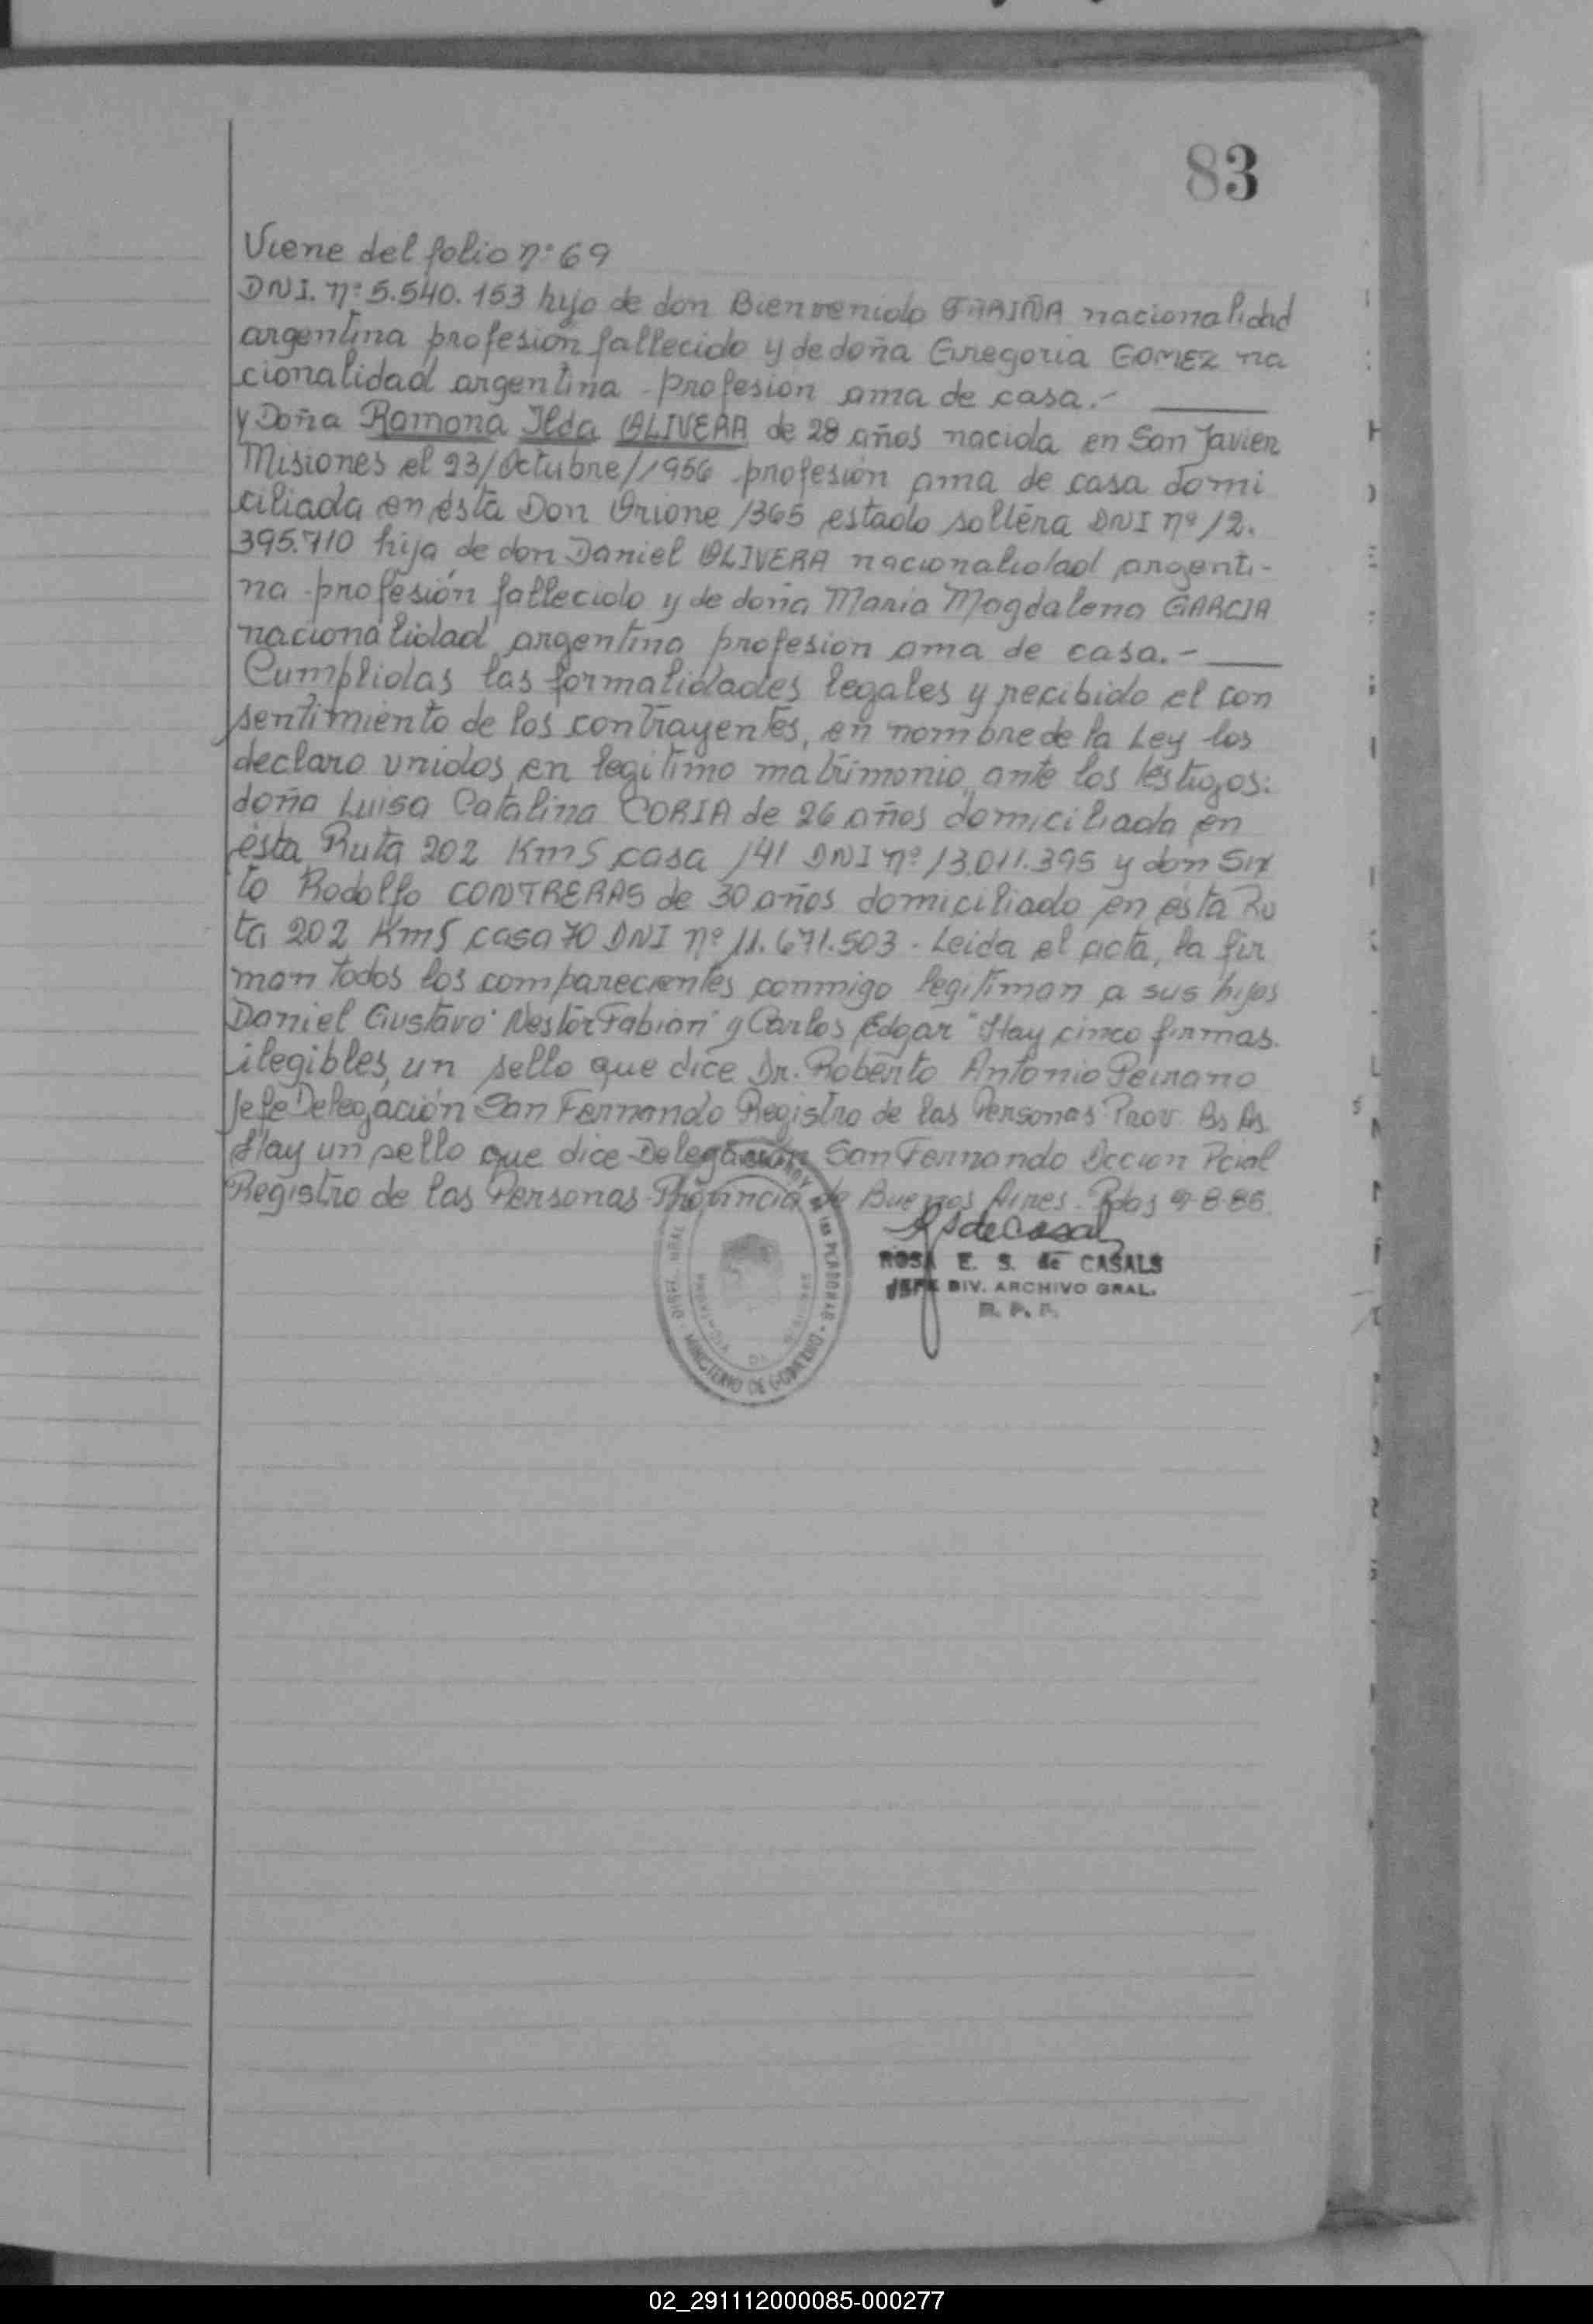 83
Viene del folio nº 69
DNI. nº 5.540.153 hijo de don Bienvenido FARIÑA nacionalidad
argentina profesión fallecido y de doña Gregoria GOMEZ na
cionalidad argentina - profesion ama de casa.-
y Doña Ramona Ilda OLIVERA de 28 años nacida en San Javier
Misiones el 23/Octubre/1956 profesión ama de casa domi
ciliada en ésta Don Orione 1365 estado soltera DNI nº 12.
395.710 hija de don Daniel OLIVERA nacionalidad argenti-
na profesión fallecido y de doña Maria Magdalena GARCIA
nacionalidad argentina profesion ama de casa.-
Cumplidas las formalidades legales y recibido el con
sentimiento de los contrayentes, en nombre de la Ley los
declaro unidos en legitimo matrimonio ante los testigos:
doña Luisa Catalina CORIA de 26 años domiciliada en
ésta Ruta 202 Km5 casa 141 DNI nº 13.011.395 y don Six
to Rodolfo CONTRERAS de 30 años domiciliado en ésta Ru
ta 202 Km5 casa 70 DNI nº 11.671.503 - Leida el acta, la fir
man todos los comparecientes conmigo legitiman a sus hijos
Daniel Gustavo" Nestor Fabian" y Carlos Edgar" Hay cinco firmas
ilegibles, un sello que dice Dr. Roberto Antonio Peirano
Jefe Delegación San Fernando Registro de las Personas Prov. Bs As.
Hay un sello que dice Delegación San Fernando Dccion Pcial
Registro de las Personas Provincia de Buenos Aires.
ROSA E. S. de CASALS
JEFE DIV. ARCHIVO GRAL.
R. P. P.
DE LAS PERSONAS - MINISTERIO DE GOBIERNO
02_291112000085-000277